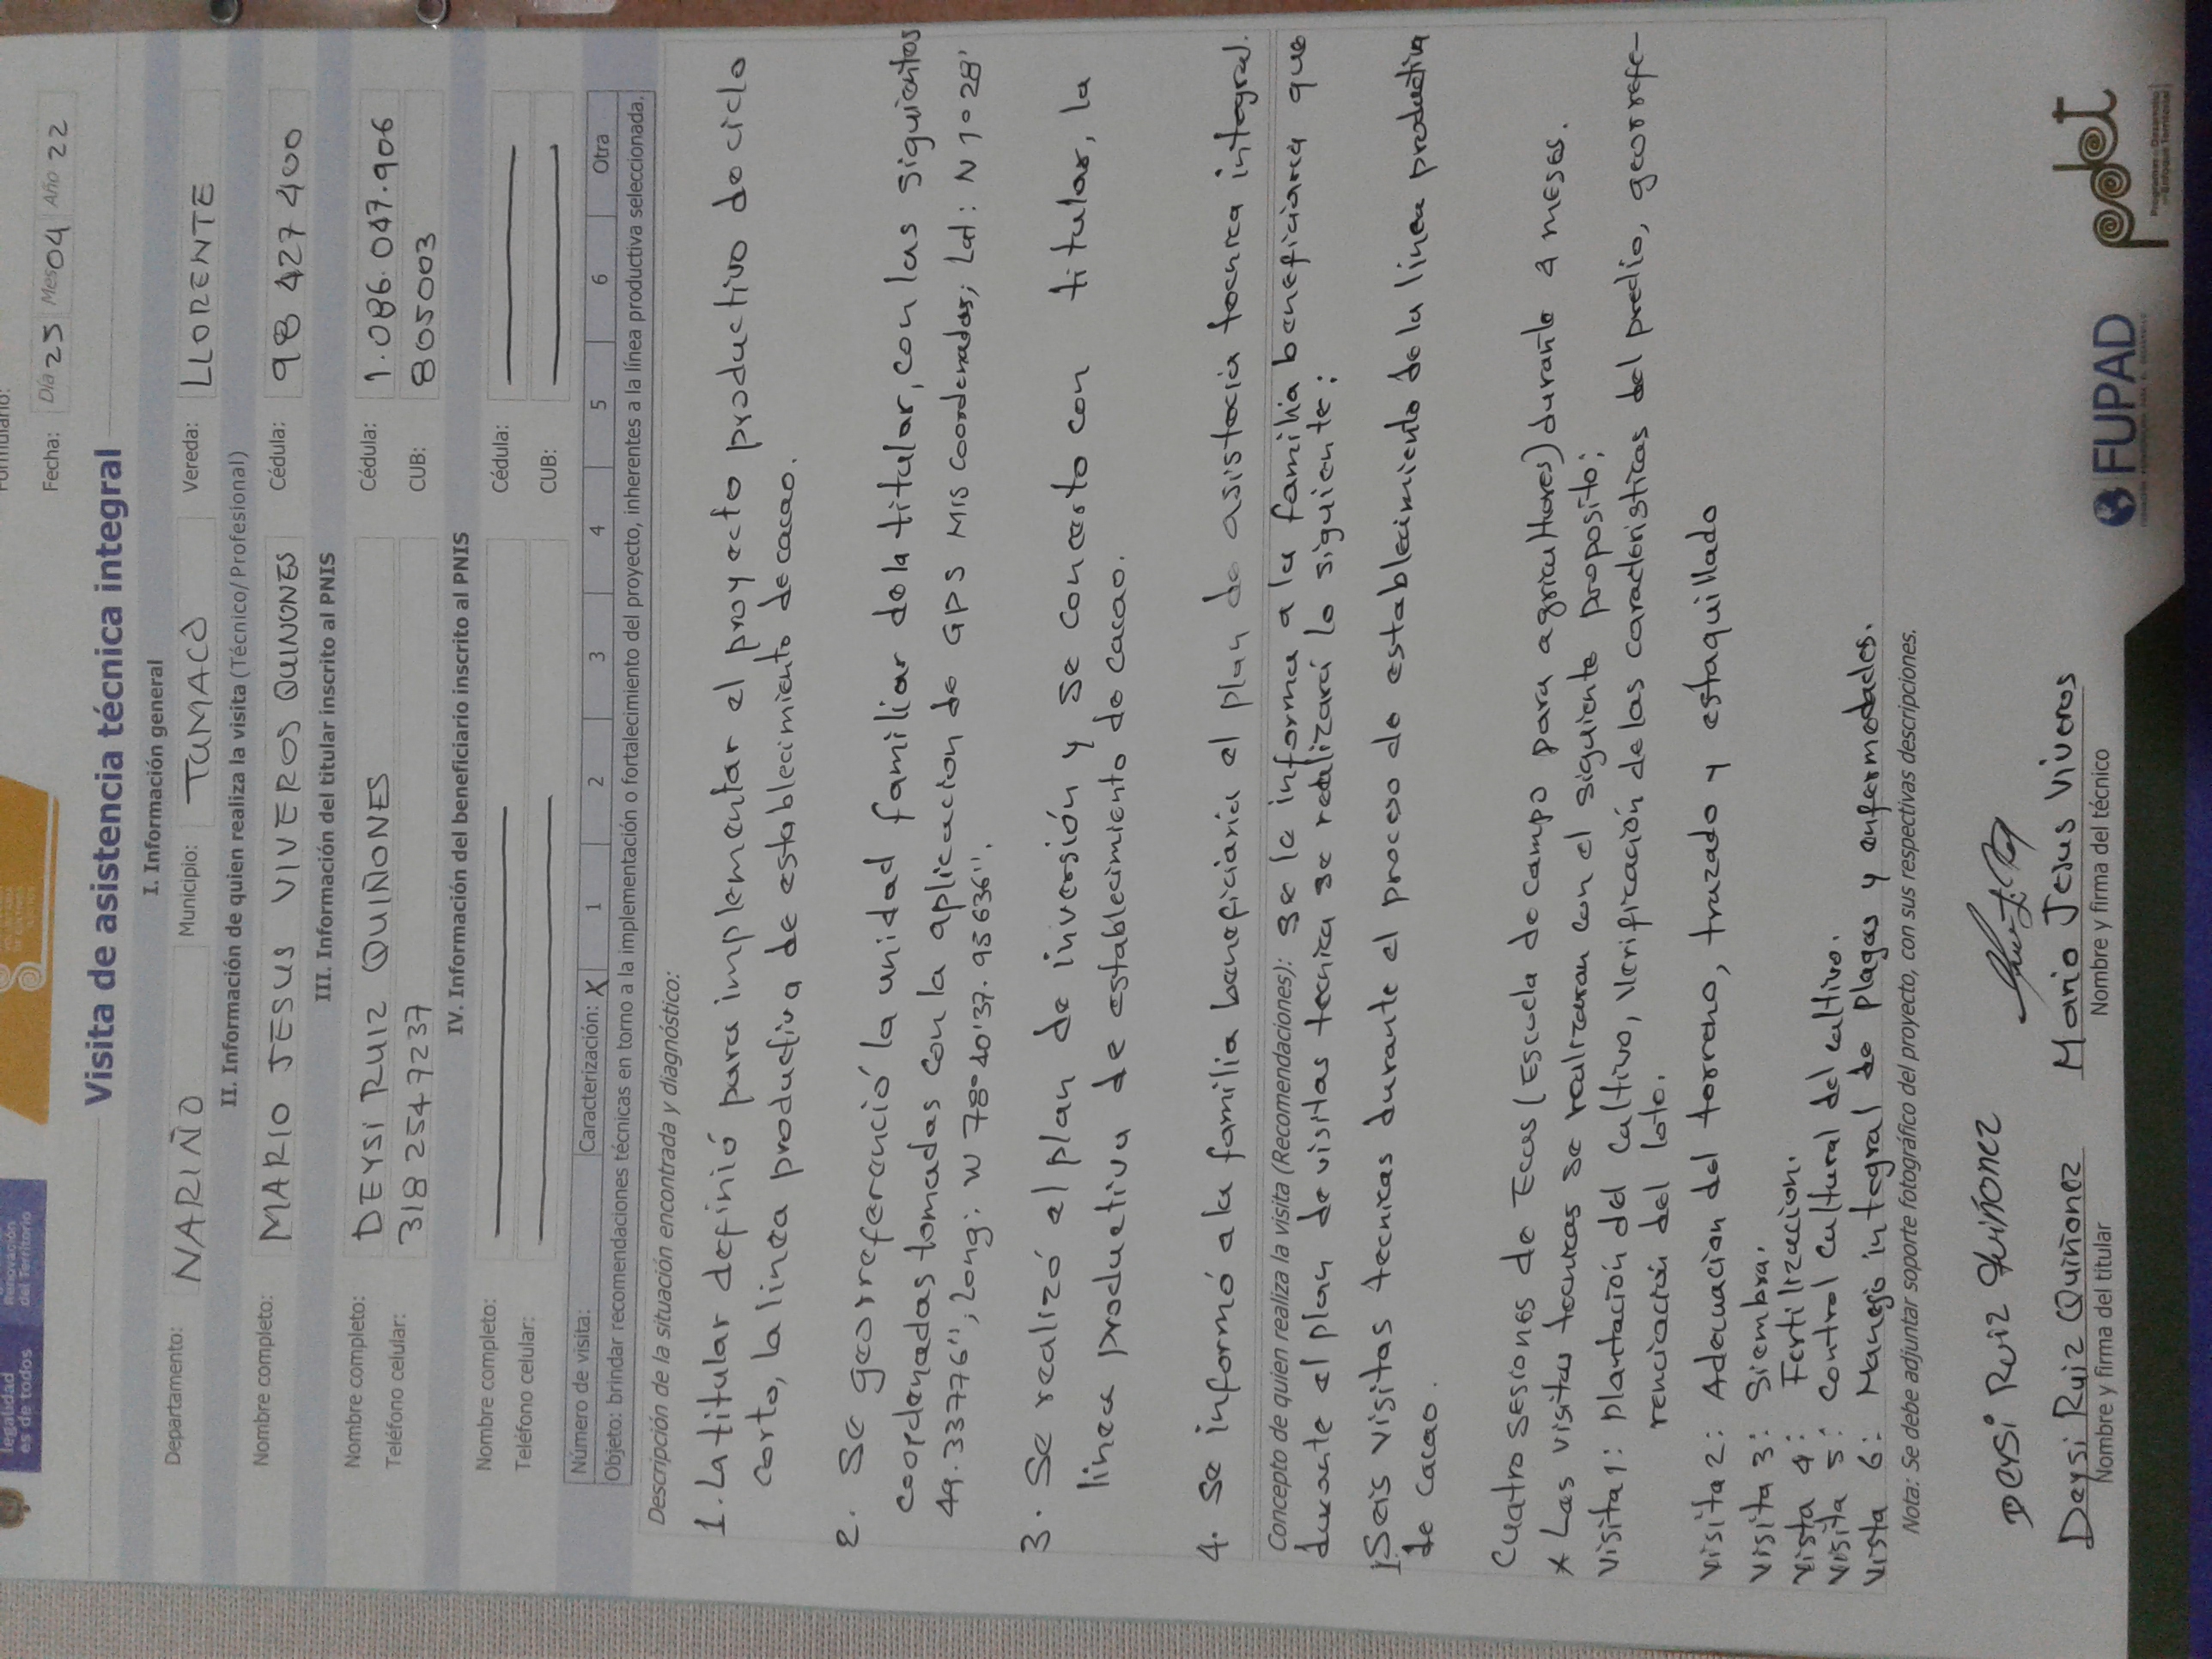 legalidad
es de todos
Renovación
del Territorio
Formulario:
Fecha: Día 25 Mes 04 Año 22
Visita de asistencia técnica integral
I. Información general
Departamento: NARIÑO Municipio: TUMACO Vereda: LLORENTE
II. Información de quien realiza la visita (Técnico/Profesional)
Nombre completo: MARIO JESUS VIVEROS QUINONES Cédula: 98 427 400
III. Información del titular inscrito al PNIS
Nombre completo: DEYSI RUIZ QUIÑONES Cédula: 1.086.047.906
Teléfono celular: 318 2547237 CUB: 805003
IV. Información del beneficiario inscrito al PNIS
Nombre completo: Cédula:
Teléfono celular: CUB:
Número de visita: Caracterización: X 1 2 3 4 5 6 Otra
Objeto: brindar recomendaciones técnicas en torno a la implementación o fortalecimiento del proyecto, inherentes a la línea productiva seleccionada.
Descripción de la situación encontrada y diagnóstico:
1. La titular definió para implementar el proyecto productivo de ciclo
corto, la linea productiva de establecimiento de cacao.
2. Se georreferenció la unidad familiar de la titular, con las siguientes
coordenadas tomadas con la aplicacion de GPS Mis coordenadas; Lat: N 1° 28'
49.33776"; Long: W 78° 40' 37.95636".
3. Se realizó el plan de inversión y se concerto con titular, la
linea productiva de establecimiento de cacao.
4. Se informó a la familia beneficiaria el plan de asistecia tecnica integral.
Concepto de quien realiza la visita (Recomendaciones): se le informa a la familia beneficiaria que
durante el plan de visitas tecnica se realizará lo siguiente:
1. Seis visitas tecnicas durante el proceso de establecimiento de la linea productiva
de cacao.
Cuatro sesiones de Ecas (Escuela de campo para agricultores) durante 4 meses.
* Las visitas tecnicas se realizaran con el siguiente proposito:
Visita 1: plantación del cultivo, Verificación de las caracteristicas del predio, georrefe-
renciación del lote.
Visita 2: Adecuacion del terreno, trazado y estaquillado
Visita 3: Siembra.
Vista 4: Fertilizacion.
Visita 5: control cultural del cultivo.
Vista 6: Manejo integral de plagas y enfermedades.
Nota: Se debe adjuntar soporte fotográfico del proyecto, con sus respectivas descripciones.
Deysi Ruiz Quiñonez
Deysi Ruiz Quiñonez Mario Jesus Viveros
Nombre y firma del titular Nombre y firma del técnico
FUPAD
pdet